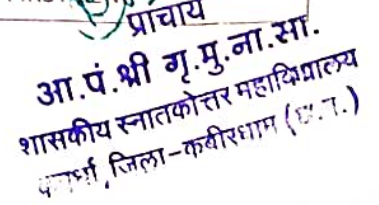 प्राचार्य
आ.पं.श्री गृ.मु.ना.सा.
शासकीय स्नातकोत्तर महाविद्यालय
कवर्धा, जिला-कबीरधाम (छ.ग.)